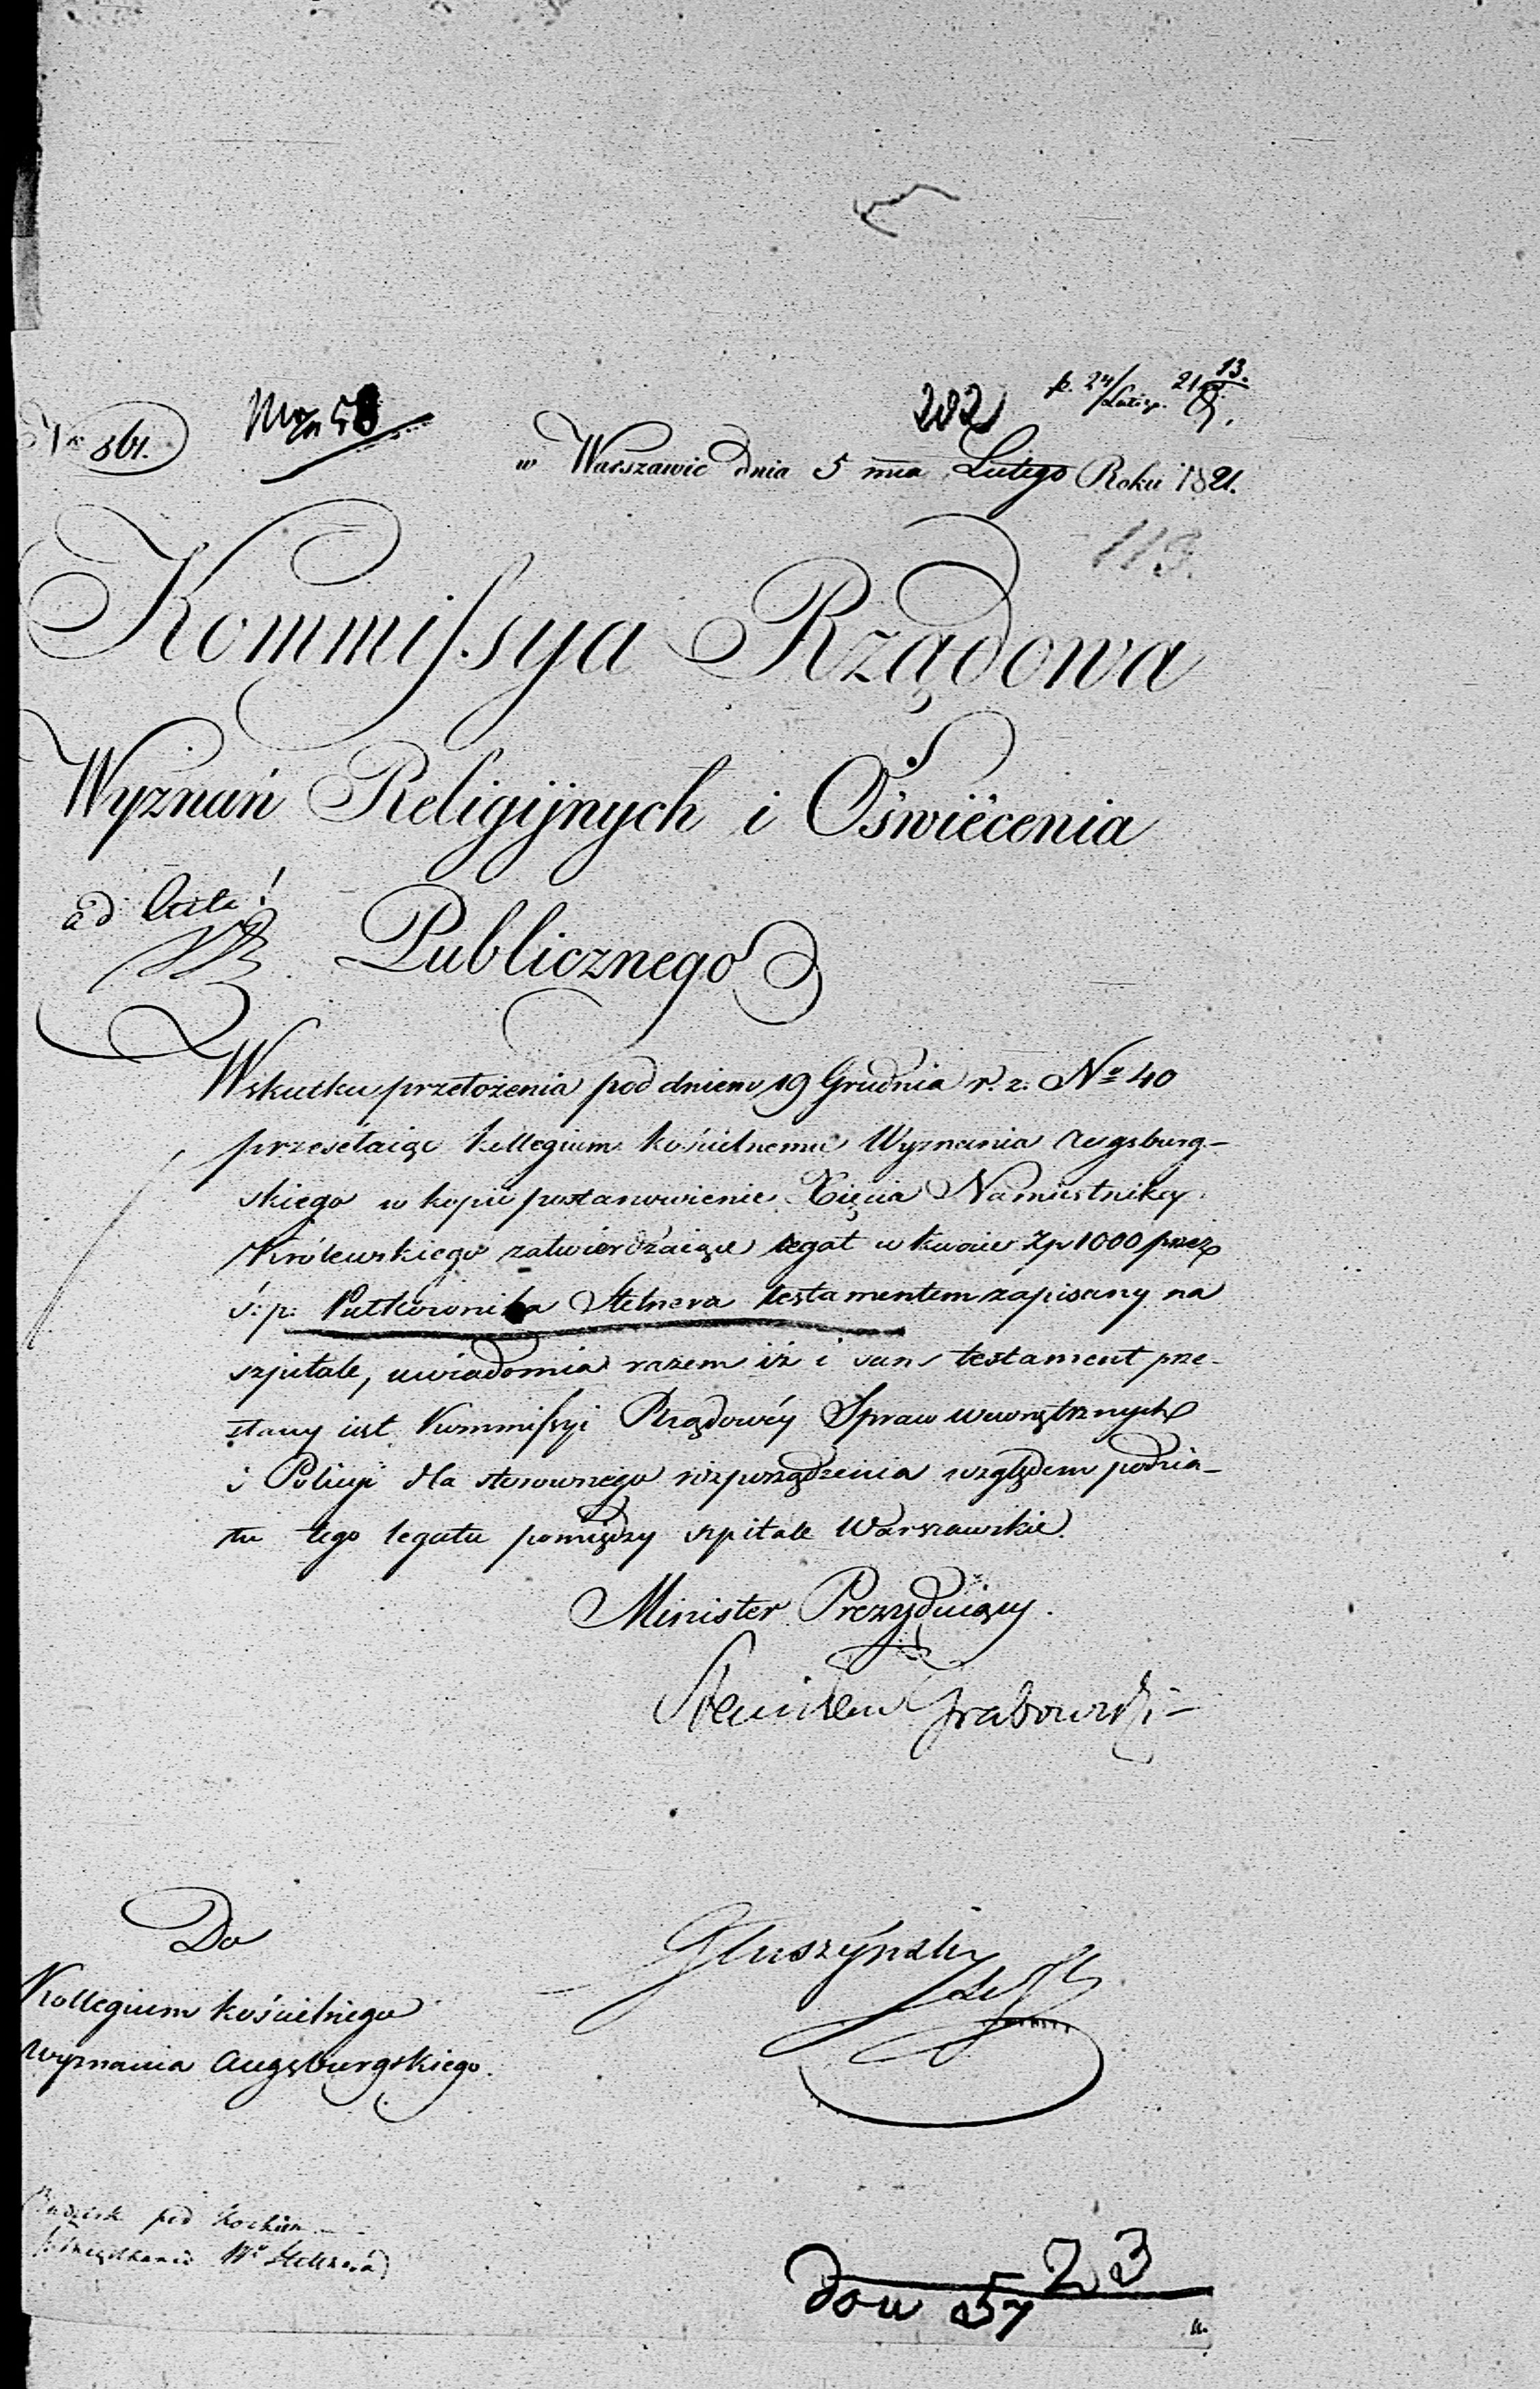 202
13.
Nr 861.
w Warszawie dnia 5 mca Lutego Roku 1821.
119.
Kommissya Rządowa
Wyznań Religijnych i Oświécenia
ad acta!
Publicznego
Wskutku przełożenia pod dniem 19 Grudnia r. z. No 40
przesełaiąc Kollegium kościelnemu Wyznania Augsburg-
skiego w kopii postanowienie Xięcia Namiestnika
Królewskiego zatwierdzaiące legat w kwocie Zp 1000 przez
ś: p: Pułkownika Stelnera testamentem zapisany na
szpitale, uwiadomia razem iż i sam testament prze-
słany iest Kommissyi Rządowéy Spraw wewnętrznych
i Policyi dla stosownego rozporządzenia względem podzia-
łu tego legatu pomiędzy szpitale Warszawskie.
Minister Prezyduiący.
Stanisław Grabowski
Do
Kollegium kościelnego
Wyznania Augsburgskiego.
Głuszyński
pod
23
dow 57